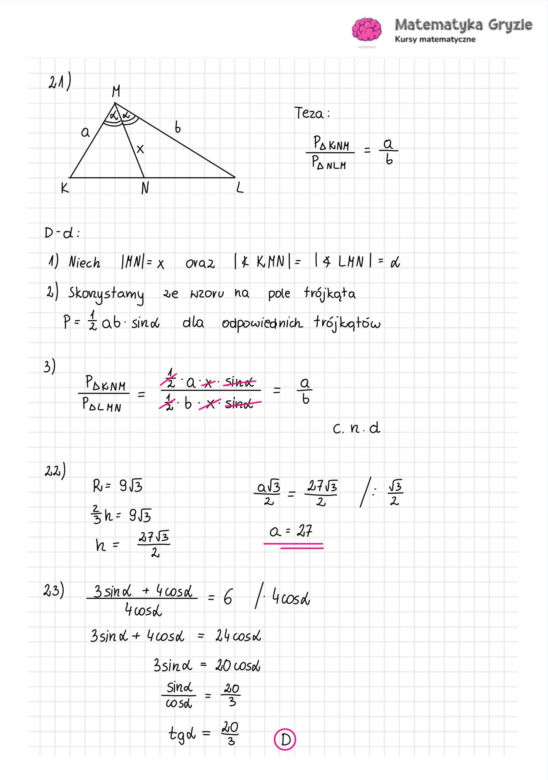 Matematyka Gryzie
Kursy matematyczne
21)
M
α α
a
b
x
K N L
Teza:
P△KNM / P△NLM = a/b
D-d:
1) Niech |MN| = x oraz |∢ KMN| = |∢ LMN| = α
2) Skorzystamy ze wzoru na pole trójkąta
P = 1/2 ab · sinα dla odpowiednich trójkątów
3)
P△KNM / P△LMN = (1/2 · a · x · sinα) / (1/2 · b · x · sinα) = a/b
c.n.d
22)
R = 9√3
2/3 h = 9√3
h = 27√3/2
a√3/2 = 27√3/2 /: √3/2
a = 27
23) (3sinα + 4cosα) / 4cosα = 6 /· 4cosα
3sinα + 4cosα = 24cosα
3sinα = 20cosα
sinα/cosα = 20/3
tgα = 20/3 D